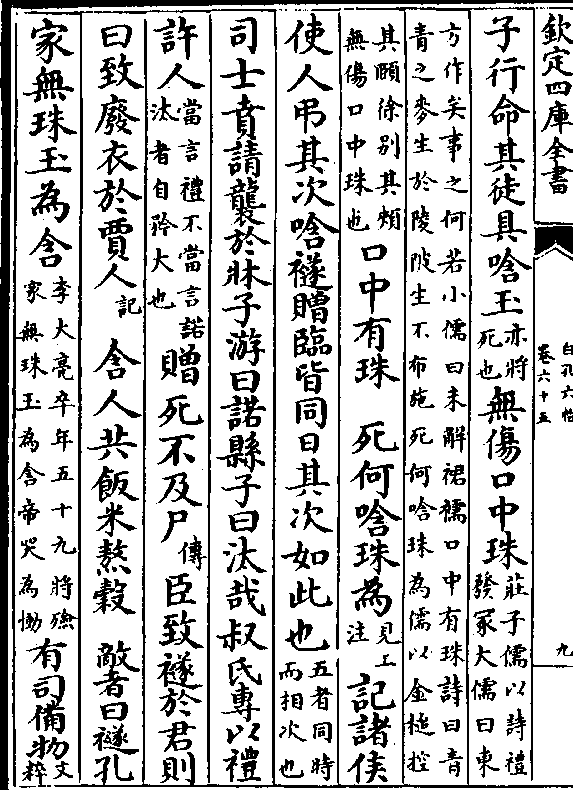 欽定四庫全書
白孔六帖
卷六十五
九
子行命其徒具唅玉亦將死也無傷口中珠莊子儒以詩禮發冢大儒曰東
方作矣事之何若小儒曰未解裙襦口中有珠詩曰青青之麥生於陵陂生不布施死何唅珠為儒以金椎控
其頤徐别其頰無傷口中珠也口中有珠 死何唅珠為見上注記諸侯
使人弔其次唅襚賵臨皆同日其次如此也五者同時而相次也
司士賁請襲於牀子游曰諾縣子曰汰哉叔氏專以禮
許人當言禮不當言諾汰者自矜大也贈死不及尸傳臣致襚於君則
曰致廢衣於賈人記 含人共飯米熬穀 敵者曰襚孔
家無珠玉為含李大亮卒年五十九將殮家無珠玉為含帝哭為慟有司備物文粹